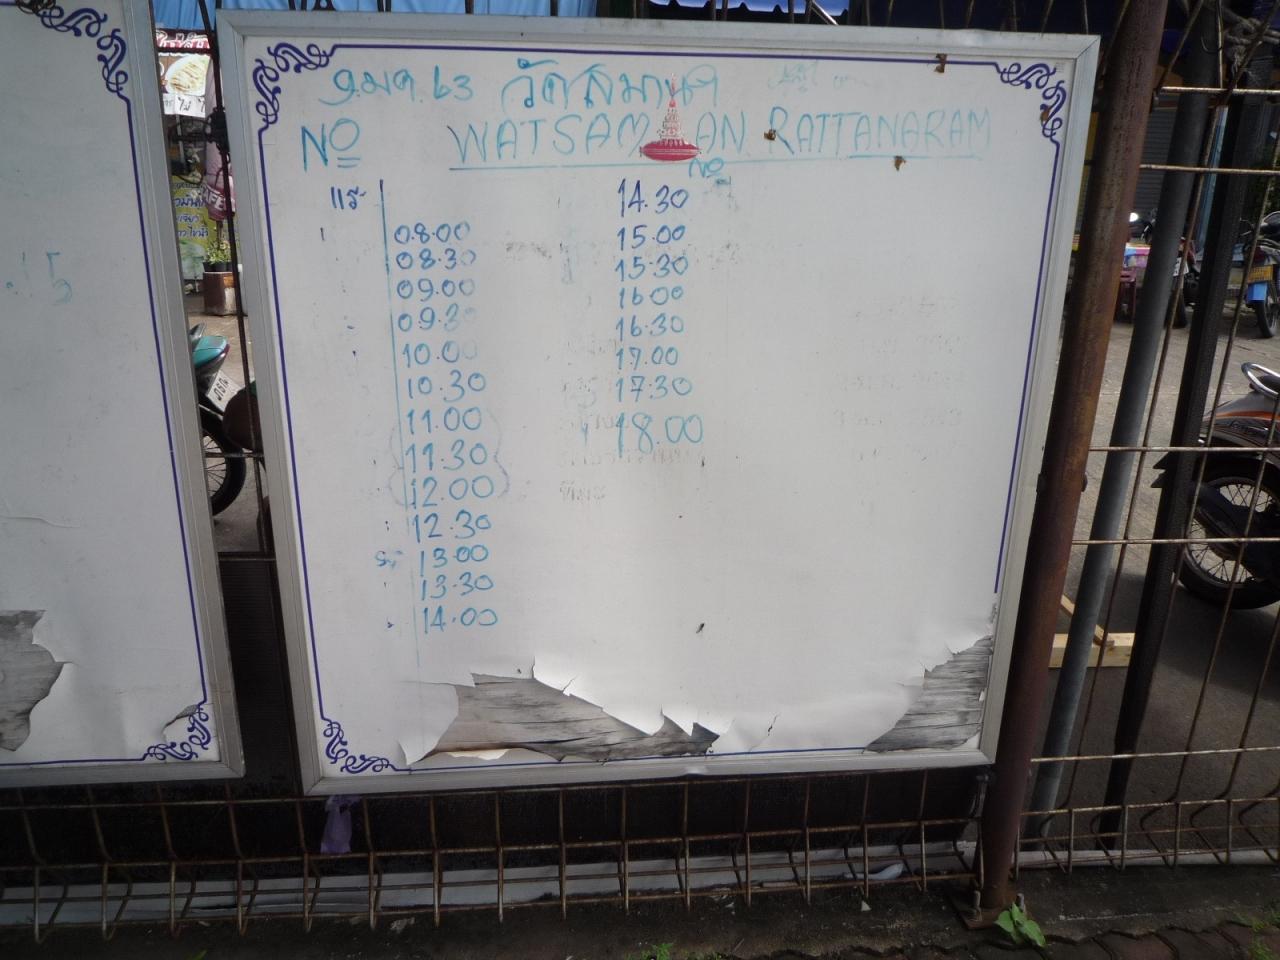 9 มค. 63 วัดสมาน
NO WATSAM AN RATTANARAM
NO
08.00
08.30
09.00
09.30
10.00
10.30
11.00
11.30
12.00
12.30
13.00
13.30
14.00
14.30
15.00
15.30
16.00
16.30
17.00
17.30
18.00